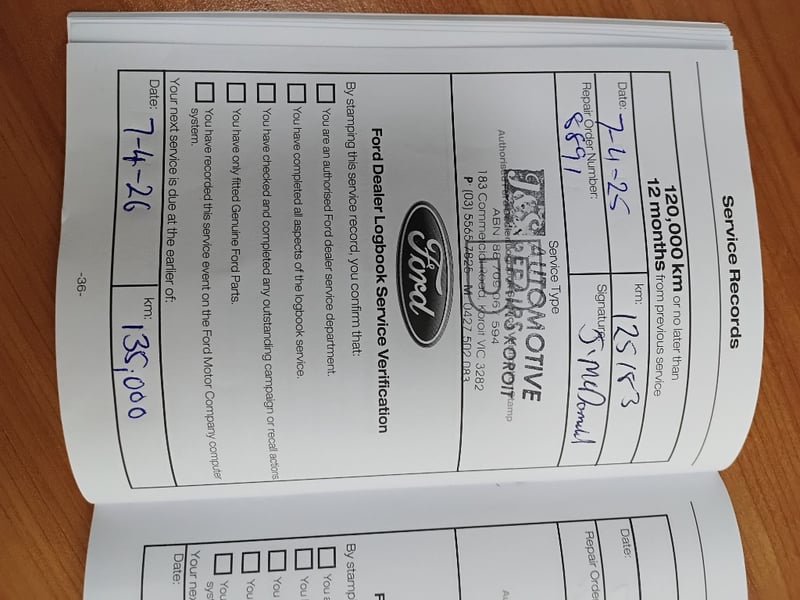 Service Records
120,000 km or no later than
12 months from previous service
Date: 7-4-25
km: 125183
Repair Order Number: 8891
Signature: J. McDonald
Service Type
AUTOMOTIVE
REPAIRS KOROIT
ABN 88
594
183 Commercial Road, Koroit VIC 3282
P (03) 5565 7825 M 0427 502 083
Ford
Ford Dealer Logbook Service Verification
By stamping this service record, you confirm that:
You are an authorised Ford dealer service department.
You have completed all aspects of the logbook service.
You have checked and completed any outstanding campaign or recall actions
You have only fitted Genuine Ford Parts.
You have recorded this service event on the Ford Motor Company computer
system.
Your next service is due at the earlier of:
Date: 7-4-26
km: 135,000
-36-
Date:
Repair Orde
Au
F
By stamp
You a
You
You
You
You
sys
Your nex
Date: